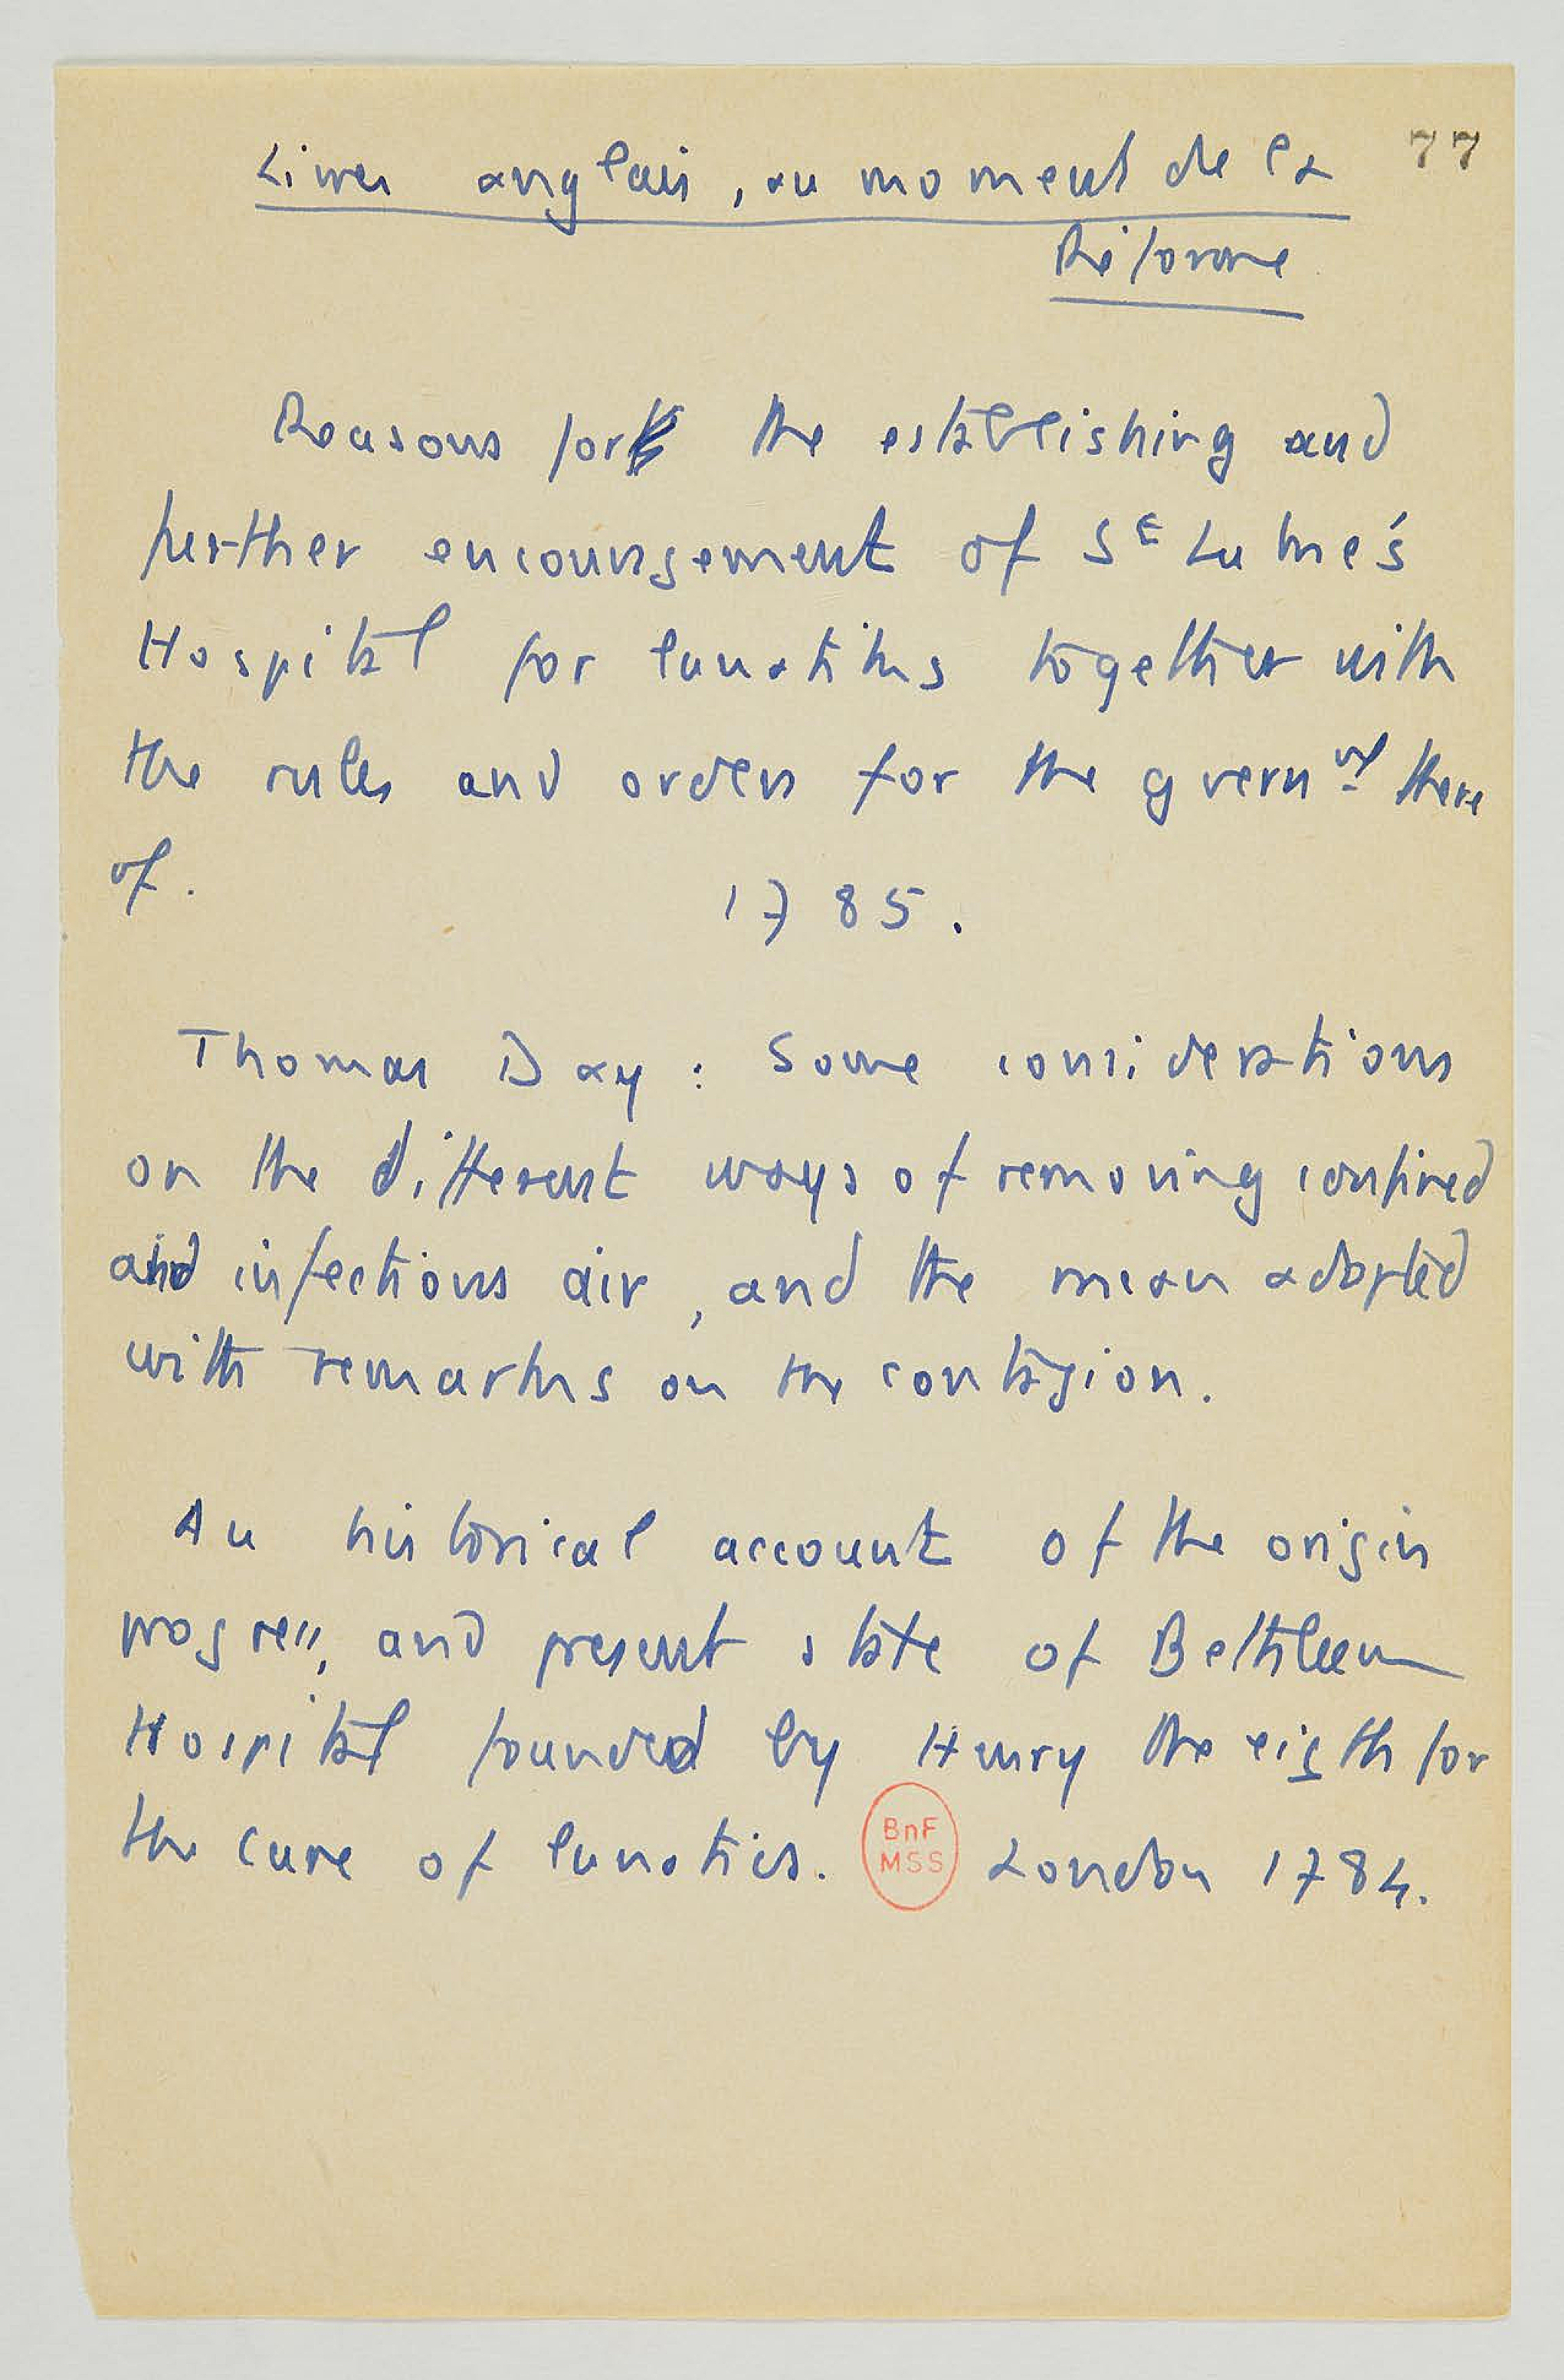 77
Livres anglais, au moment de la
Réforme
Reasons for the establishing and
further encouragement of St Luke's
Hospital for lunatiks together with
the rules and orders for the governt there
of.
1785.
Thomas Day : Some considerations
on the different ways of removing confined
and infectious air, and the mean adopted
with remarks on the contagion.
An historical account of the origin
progress, and present state of Bethleem
Hospital founded by Henry the eigth for
the cure of lunatics. London 1784.
BnF
MSS